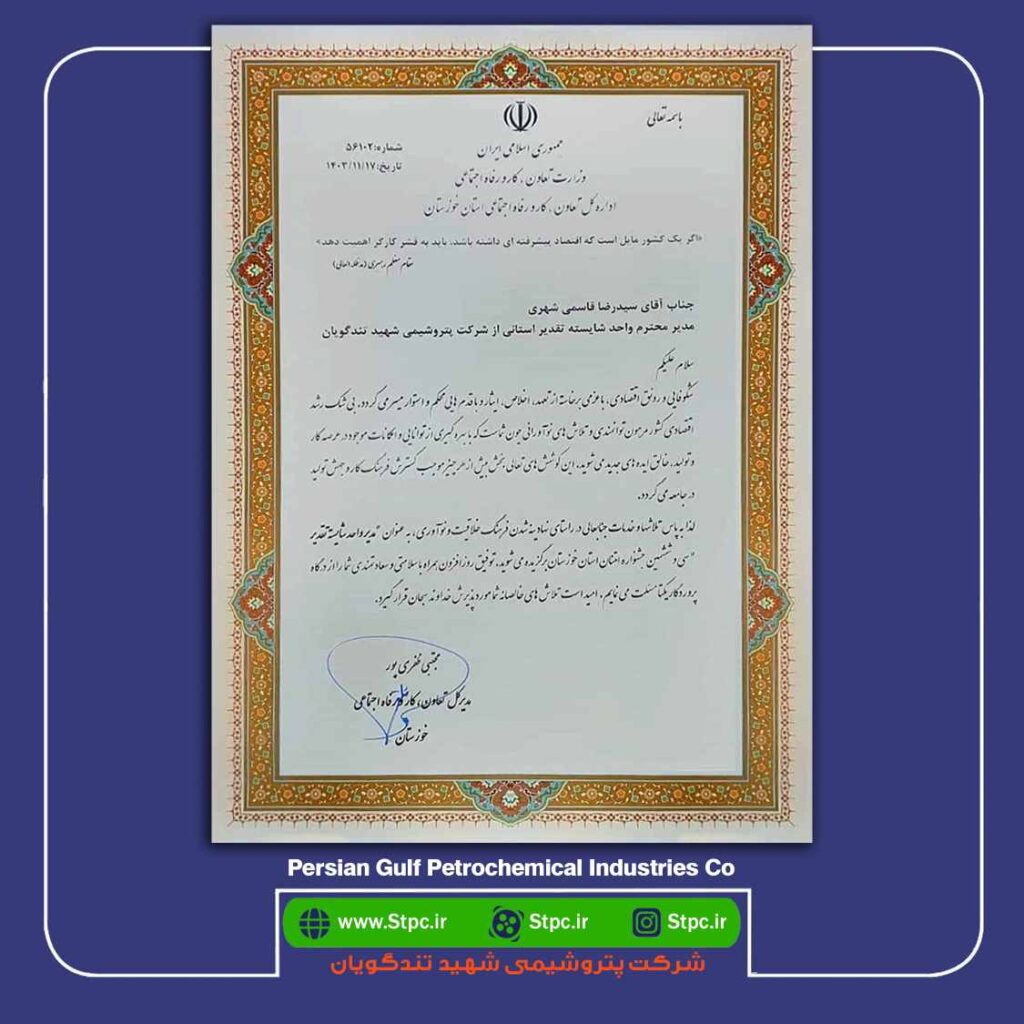 باسمه تعالی
جمهوری اسلامی ایران
وزارت تعاون ، کار و رفاه اجتماعی
اداره کل تعاون ، کار و رفاه اجتماعی استان خوزستان
شماره:۵۶۱۰۲
تاریخ:۱۴۰۳/۱۱/۱۷
«اگر یک کشور مایل است که اقتصاد پیشرفته ای داشته باشد، باید به قشر کارگر اهمیت دهد»
مقام معظم رهبری (مدظله العالی)
جناب آقای سیدرضا قاسمی شهری
مدیر محترم واحد شایسته تقدیر استانی از شرکت پتروشیمی شهید تندگویان
سلام علیکم
شکوفایی و رونق اقتصادی، با عزمی برخاسته از تعهد، اخلاص، ایثار و با قدم هایی محکم و استوار میسر می گردد. بی شک رشد
اقتصادی کشور مرهون توانمندی و تلاش های نوآورانی چون شماست که با بهره گیری از توانایی و امکانات موجود در عرصه کار
و تولید، خالق ایده های جدید می شوید، این کوشش های تعالی بخش بیش از هر چیز موجب گسترش فرهنگ کار و جهش تولید
در جامعه می گردد.
لذا به پاس تلاشها و خدمات جنابعالی در راستای نهادینه شدن فرهنگ خلاقیت و نوآوری، به عنوان "مدیر واحد شایسته تقدیر
"سی و ششمین جشنواره امتنان استان خوزستان برگزیده می شوید، توفیق روزافزون همراه با سلامتی و سعادتمندی شما را از درگاه
پروردگار یکتا مسئلت می نمایم. امید است تلاش های خالصانه شما مورد پذیرش خداوند سبحان قرار گیرد.
مجتبی ظفری پور
مدیرکل تعاون، کار و رفاه اجتماعی
خوزستان
Persian Gulf Petrochemical Industries Co
www.Stpc.ir Stpc.ir Stpc.ir
شرکت پتروشیمی شهید تندگویان